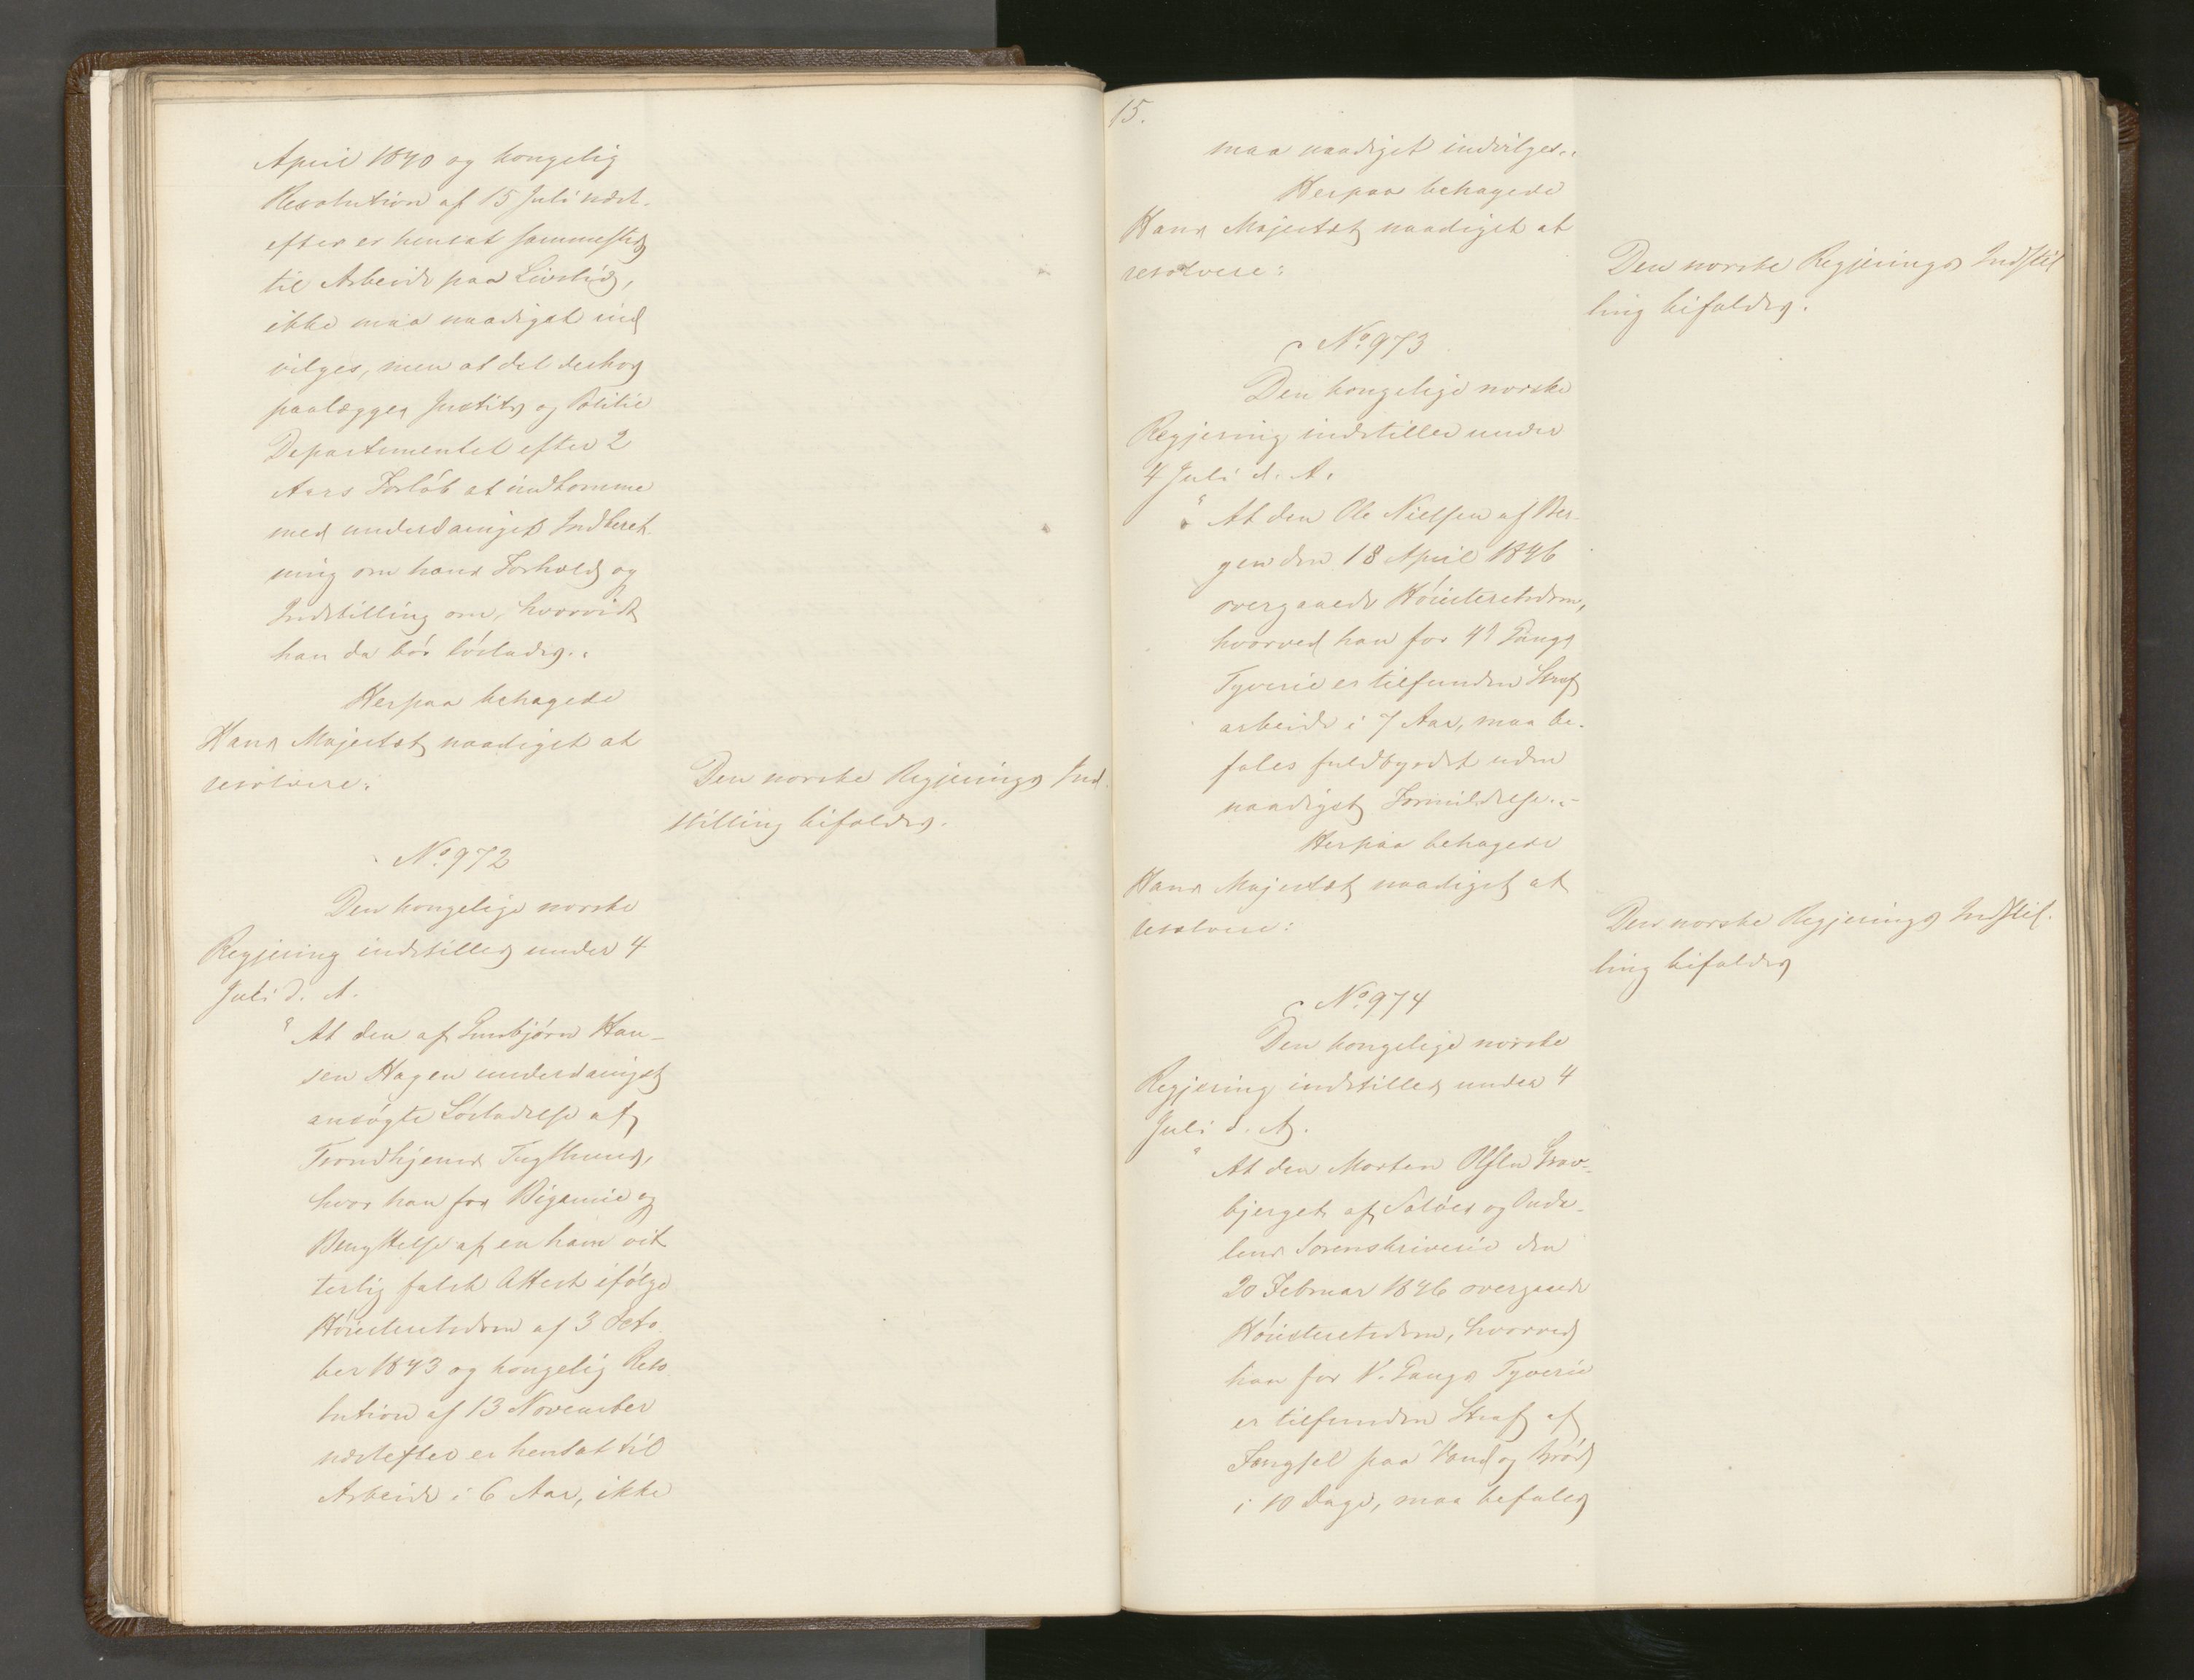 April 1840 og kongelig
Resolution af 15 Juli næst-
efter er hensat sammesteds
til Arbeide paa Livstid,
ikke maa naadigst ind
vilges, men at det derhos
paalægges Justits og Politie
Departementet efter 2
Aars Forløb at indkomme
med underdanigst Indberet
ning om hans Forhold og
Indstilling om, hvorvidt
han da bør løslades."
Herpaa behagede
Hans Majestæt naadigst at
resolvere:
Den norske Regjerings Ind-
stilling bifaldes.
No. 972
Den kongelige norske
Regjering indstiller under 4
Juli d. A.
"At den af Gunbjørn Han-
sen Hagen underdanigst
ansøgte Løsladelse af
Trondhjems Tugthuus,
hvor han for Bigamie og
Benyttelse af en ham vit
terlig falsk Attest ifølge
Høiesteretsdom af 3 Octo
ber 1843 og kongelig Reso
lution af 13 November
næstefter er hensat til
Arbeide i 6 Aar, ikke
15.
maa naadigst indvilges."
Herpaa behagede
Hans Majestæt naadigst at
resolvere:
Den norske Regjerings Indstil
ling bifaldes.
No. 973
Den kongelige norske
Regjering indstiller under
4 Juli d. A.
"At den Ole Nielsen af Ber-
gen den 18 April 1846
overgaaede Høiesteretsdom,
hvorved han for 4de Gangs
Tyverie er tilfunden Straf
arbeide i 7 Aar, maa be-
fales fuldbyrdet uden
naadigst Formildelse."
Herpaa behagede
Hans Majestæt naadigst at
resolvere:
Den norske Regjerings Indstil-
ling bifaldes
No. 974
Den kongelige norske
Regjering indstiller under 4
Juli d. A.
"At den Morten Olsen Grav-
bjerget af Soløer og Oude-
lens Sorenskriverie den
20 Februar 1846 overgaaede
Høiesteretsdom, hvorved
han for 1. Gangs Tyverie
er tilfunden Straf af
Fængsel paa Vand og Brød
i 10 Dage, maa befales